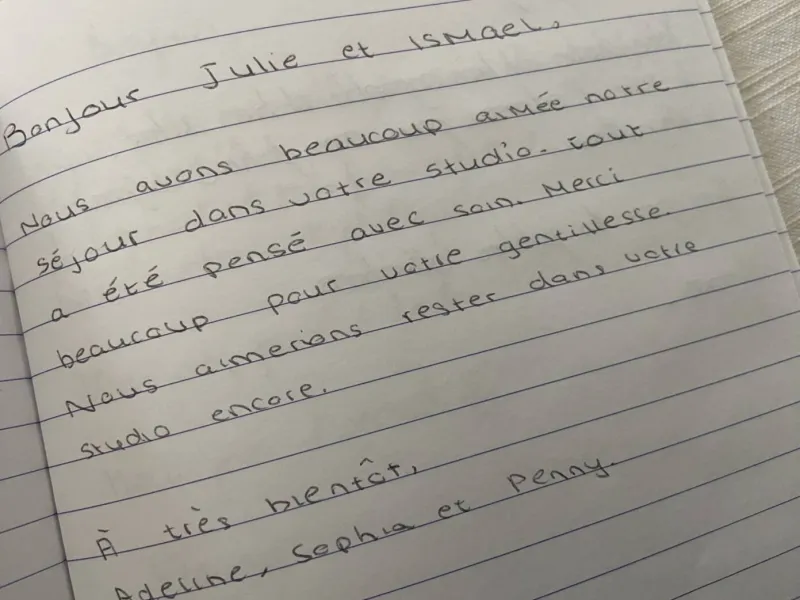 Bonjour Julie et Ismael,
Nous avons beaucoup aimée notre
séjour dans votre studio. Tout
a été pensé avec soin. Merci
beaucoup pour votre gentillesse.
Nous aimerions rester dans votre
studio encore.
À très bientôt,
Adeline, Sophia et Penny.